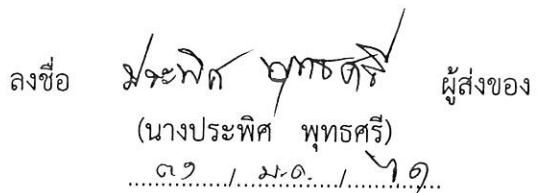 ลงชื่อ ประพิศ พุทธศรี ผู้ส่งของ
(นางประพิศ พุทธศรี)
๓๑ / ม.ค. /